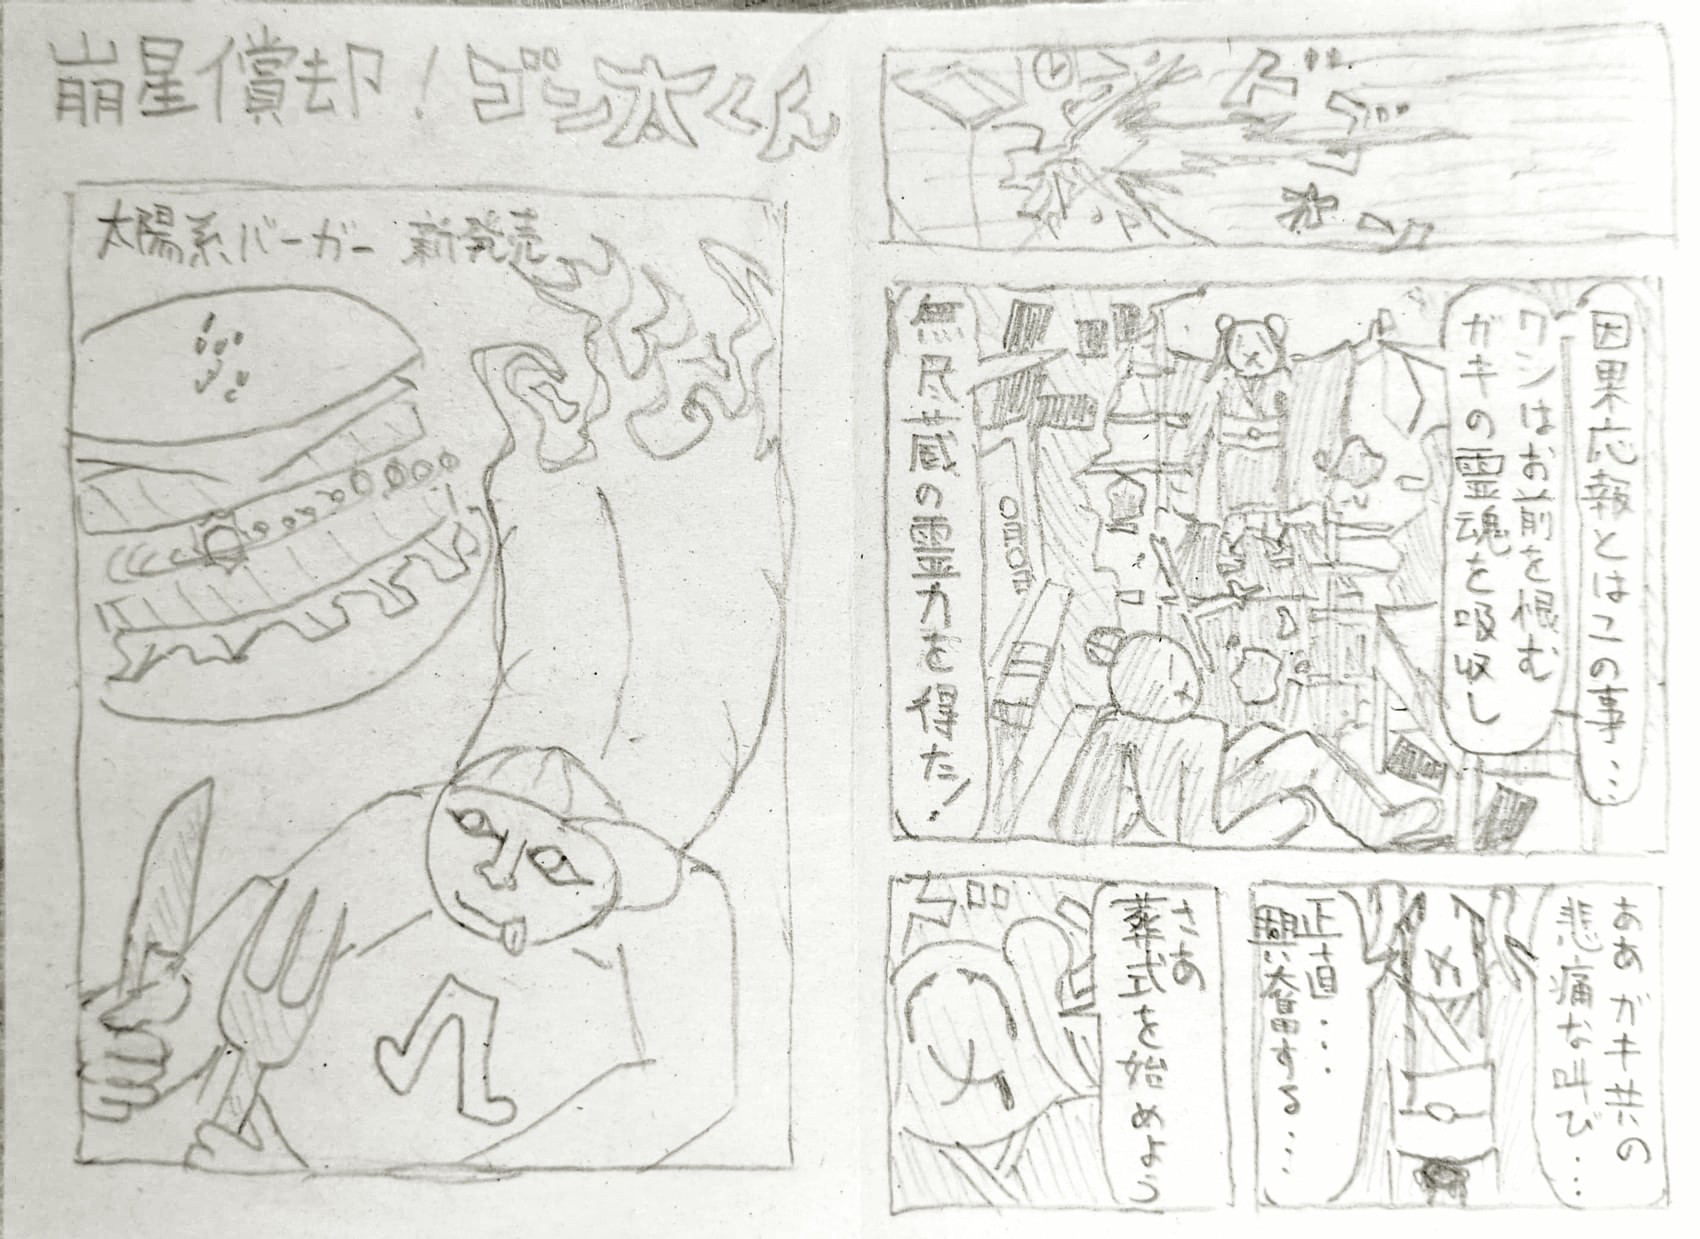 因果応報とはこの事…
ワシはお前を恨む
ガキの霊魂を吸収し
無尽蔵の霊力を得た！
ああガキ共の
悲痛な叫び…
正直…
興奮する…
さあ
葬式を始めよう
崩星償却！ゴン太くん
太陽系バーガー 新発売